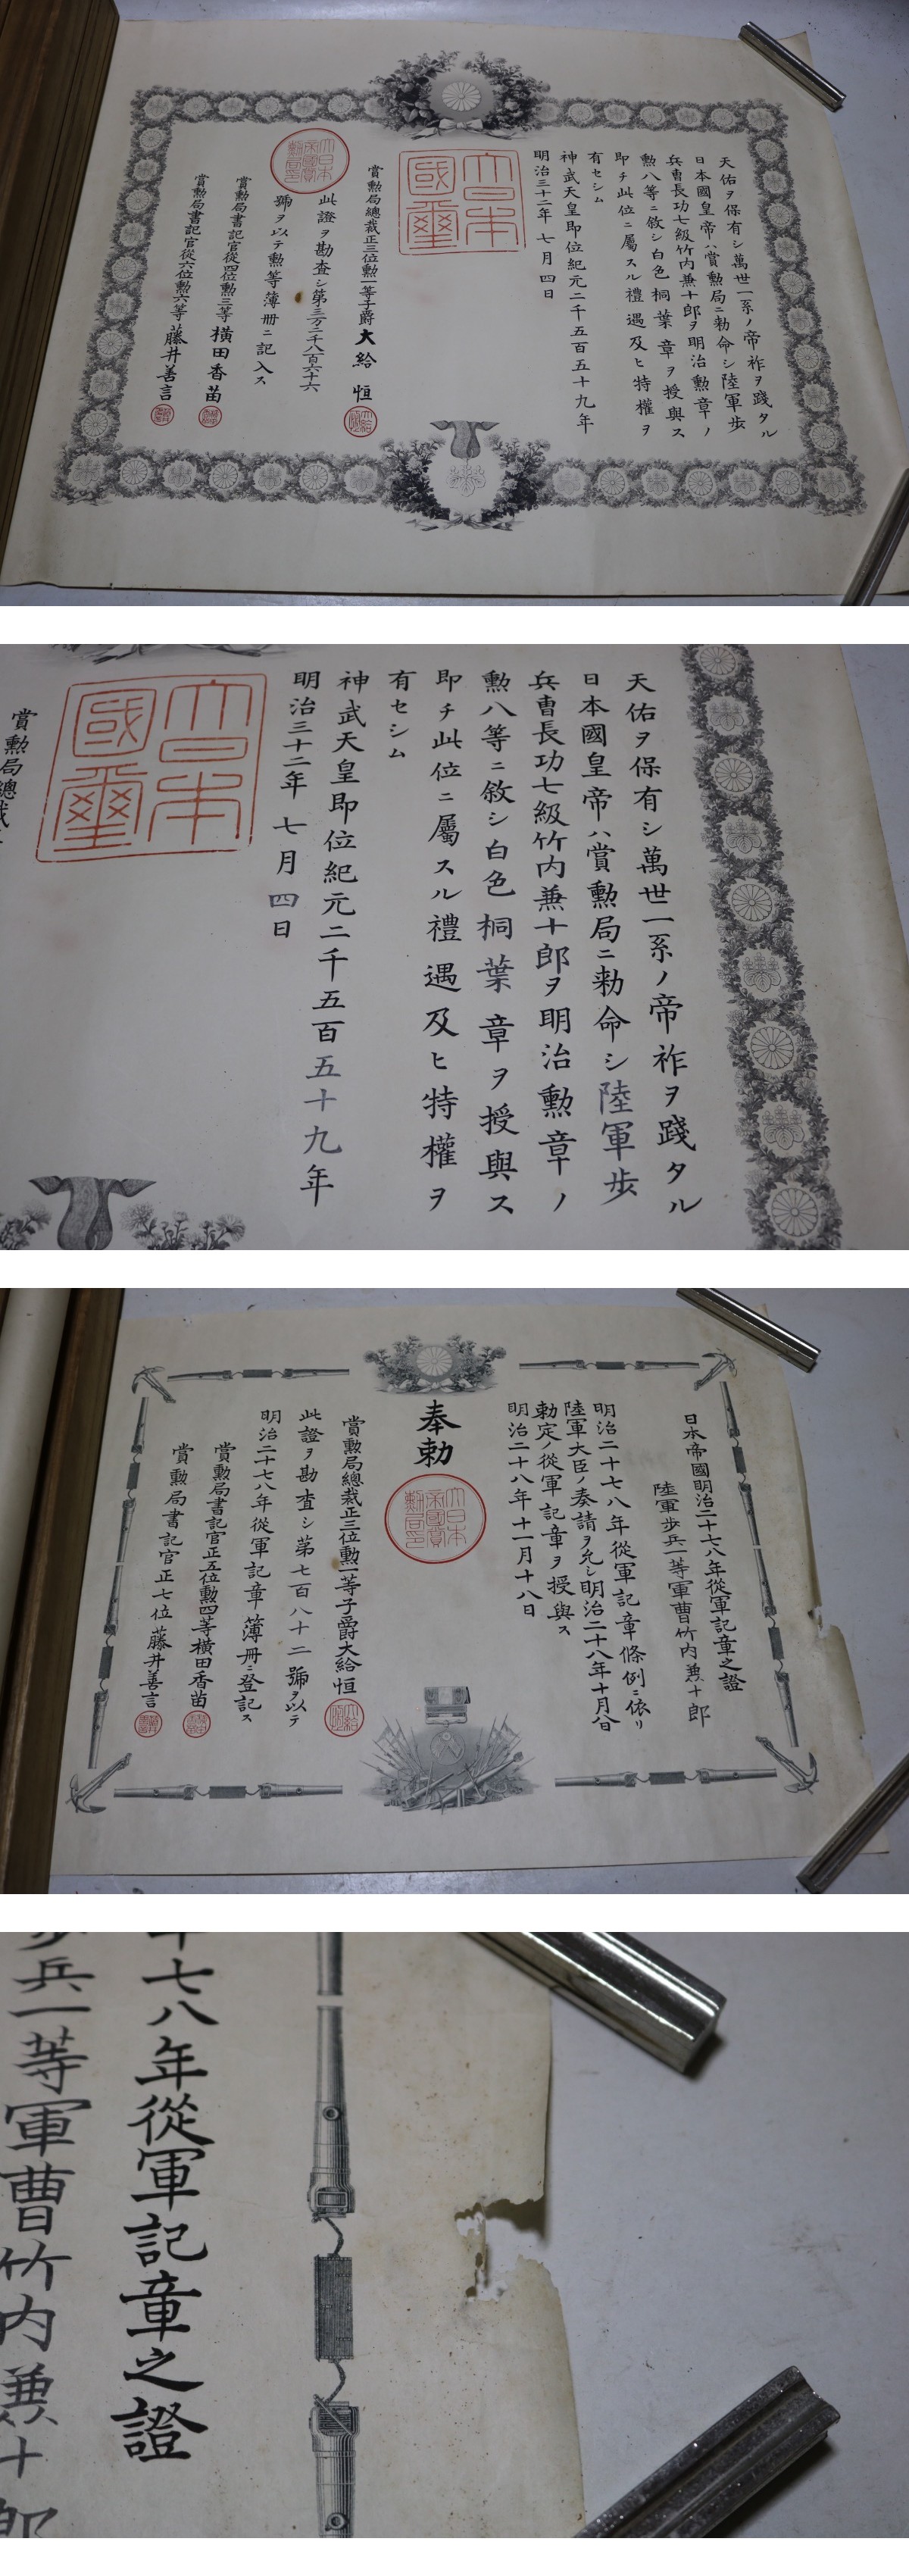 天佑ヲ保有シ萬世一系ノ帝祚ヲ踐タル
日本國皇帝ハ賞勲局ニ勅命シ陸軍歩
兵曹長功七級竹内兼十郎ヲ明治勲章ノ
勲八等ニ敘シ白色桐葉章ヲ授與ス
即チ此位ニ屬スル禮遇及ヒ特權ヲ
有セシム
神武天皇即位紀元二千五百五十九年
明治三十二年七月四日
大日本
國璽
賞勲局總裁正三位勲一等子爵大給恒
此證ヲ勘査シ第三万二千八百六十六
號ヲ以テ勲等簿冊ニ記入ス
賞勲局書記官從四位勲三等横田香苗
賞勲局書記官從六位勲六等藤井善言
天佑ヲ保有シ萬世一系ノ帝祚ヲ踐タル
日本國皇帝ハ賞勲局ニ勅命シ陸軍歩
兵曹長功七級竹内兼十郎ヲ明治勲章ノ
勲八等ニ敘シ白色桐葉章ヲ授與ス
即チ此位ニ屬スル禮遇及ヒ特權ヲ
有セシム
神武天皇即位紀元二千五百五十九年
明治三十二年七月四日
大日本
國璽
賞勲局總裁
日本帝國明治二十七八年從軍記章之證
陸軍歩兵一等軍曹竹内兼十郎
明治二十七八年從軍記章條例ニ依リ
陸軍大臣ノ奏請ヲ允シ明治二十八年十月八日
勅定ノ從軍記章ヲ授與ス
明治二十八年十一月十八日
奉勅
大日本帝國賞勲局印
賞勲局總裁正三位勲一等子爵大給恒
此證ヲ勘査シ第七百八十二號ヲ以テ
明治二十七八年從軍記章簿冊ニ登記ス
賞勲局書記官正五位勲四等横田香苗
賞勲局書記官正七位藤井善言
十七八年從軍記章之證
歩兵一等軍曹竹内兼十郎